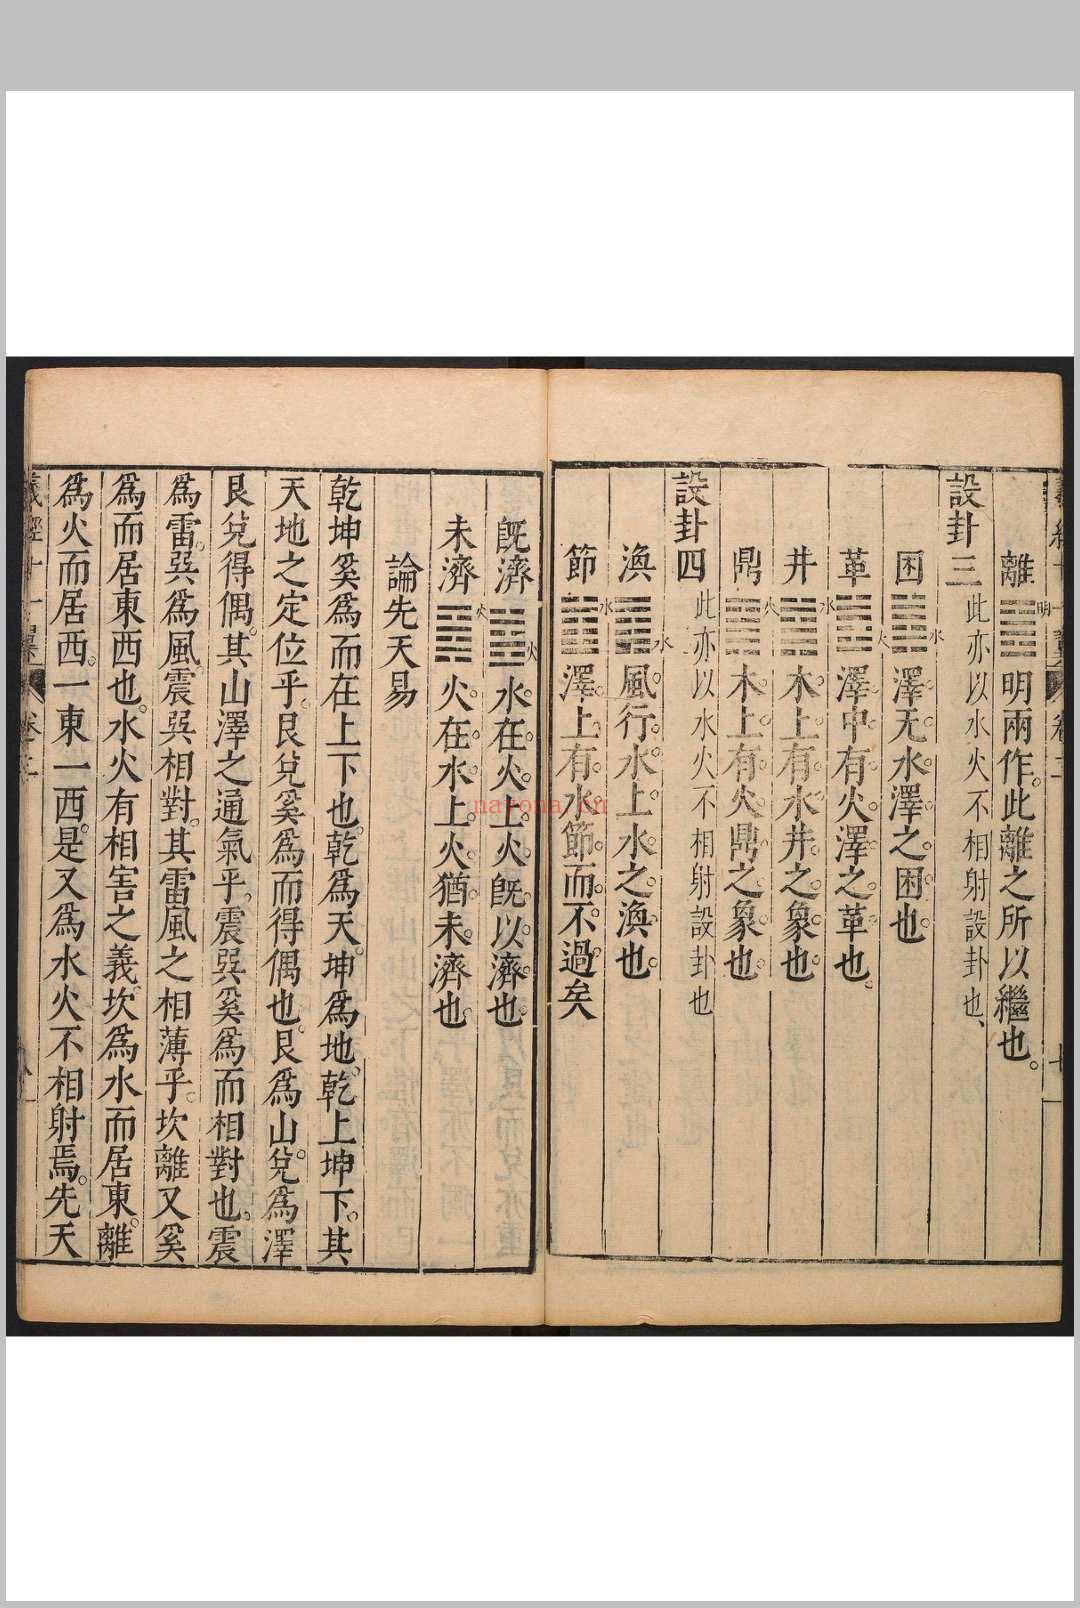 離 明 明兩作。此離之所以繼也。
設卦三 此亦以水火不相射設卦也、
困 水 澤无水。澤之困也。
革 火 澤中有火。澤之革也。
井 水 木上有水。井之象也。
鼎 火 木上有火。鼎之象也。
設卦四 此亦以水火不相射設卦也
渙 水 風行水上。水之渙也。
節 水 澤上有水。節而不過矣
既濟 火 水在火上。火旣以濟也
未濟 火 火在水上。火猶未濟也
論先天易
乾坤奚爲而在上下也。乾爲天。坤爲地。乾上坤下。其
天地之定位乎。艮兌奚爲而得偶也。艮爲山。兌爲澤
艮兌得偶。其山澤之通氣乎。震巽奚爲而相對也。震
爲雷。巽爲風。震巽相對。其雷風之相薄乎。坎離又奚
爲而居東西也。水火有相害之義。坎爲水而居東。離
爲火而居西。一東一西。是又爲水火不相射焉。先天
羲經十一翼 卷之二
nayona.cn